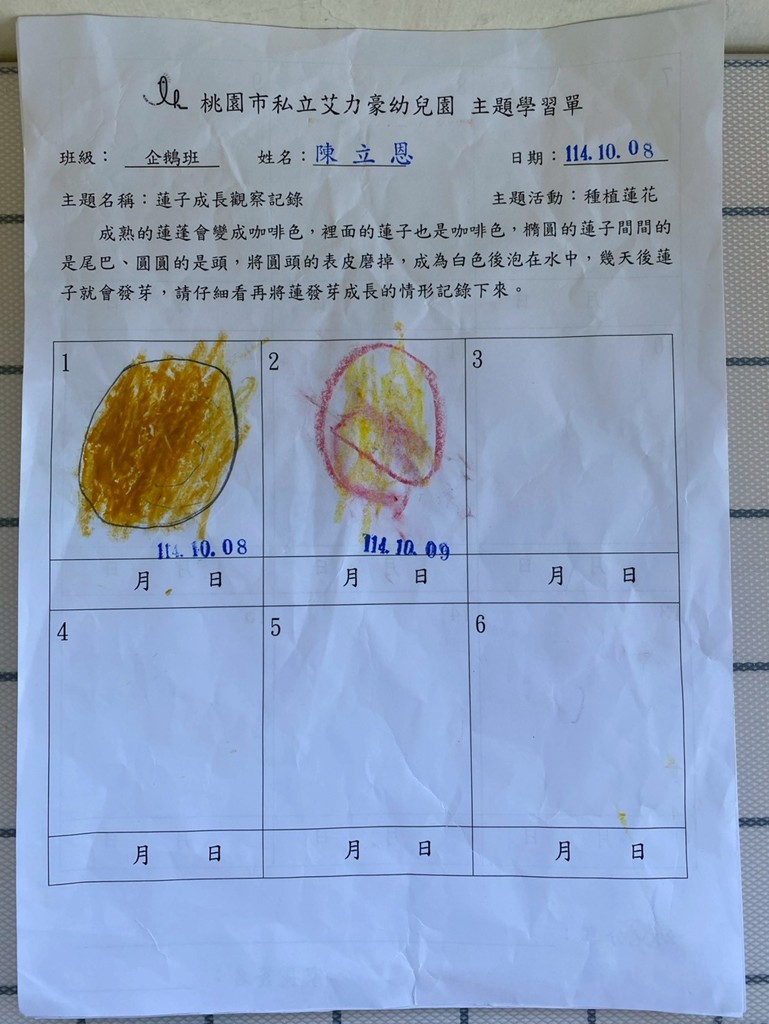 桃園市私立艾力豪幼兒園 主題學習單
班級： 企鵝班 姓名：陳立恩 日期：114.10.08
主題名稱：蓮子成長觀察記錄 主題活動：種植蓮花
成熟的蓮蓬會變成咖啡色，裡面的蓮子也是咖啡色，橢圓的蓮子間間的
是尾巴、圓圓的是頭，將圓頭的表皮磨掉，成為白色後泡在水中，幾天後蓮
子就會發芽，請仔細看再將蓮發芽成長的情形記錄下來。
1 2 3
114.10.08 114.10.09
月 日 月 日 月 日
4 5 6
月 日 月 日 月 日